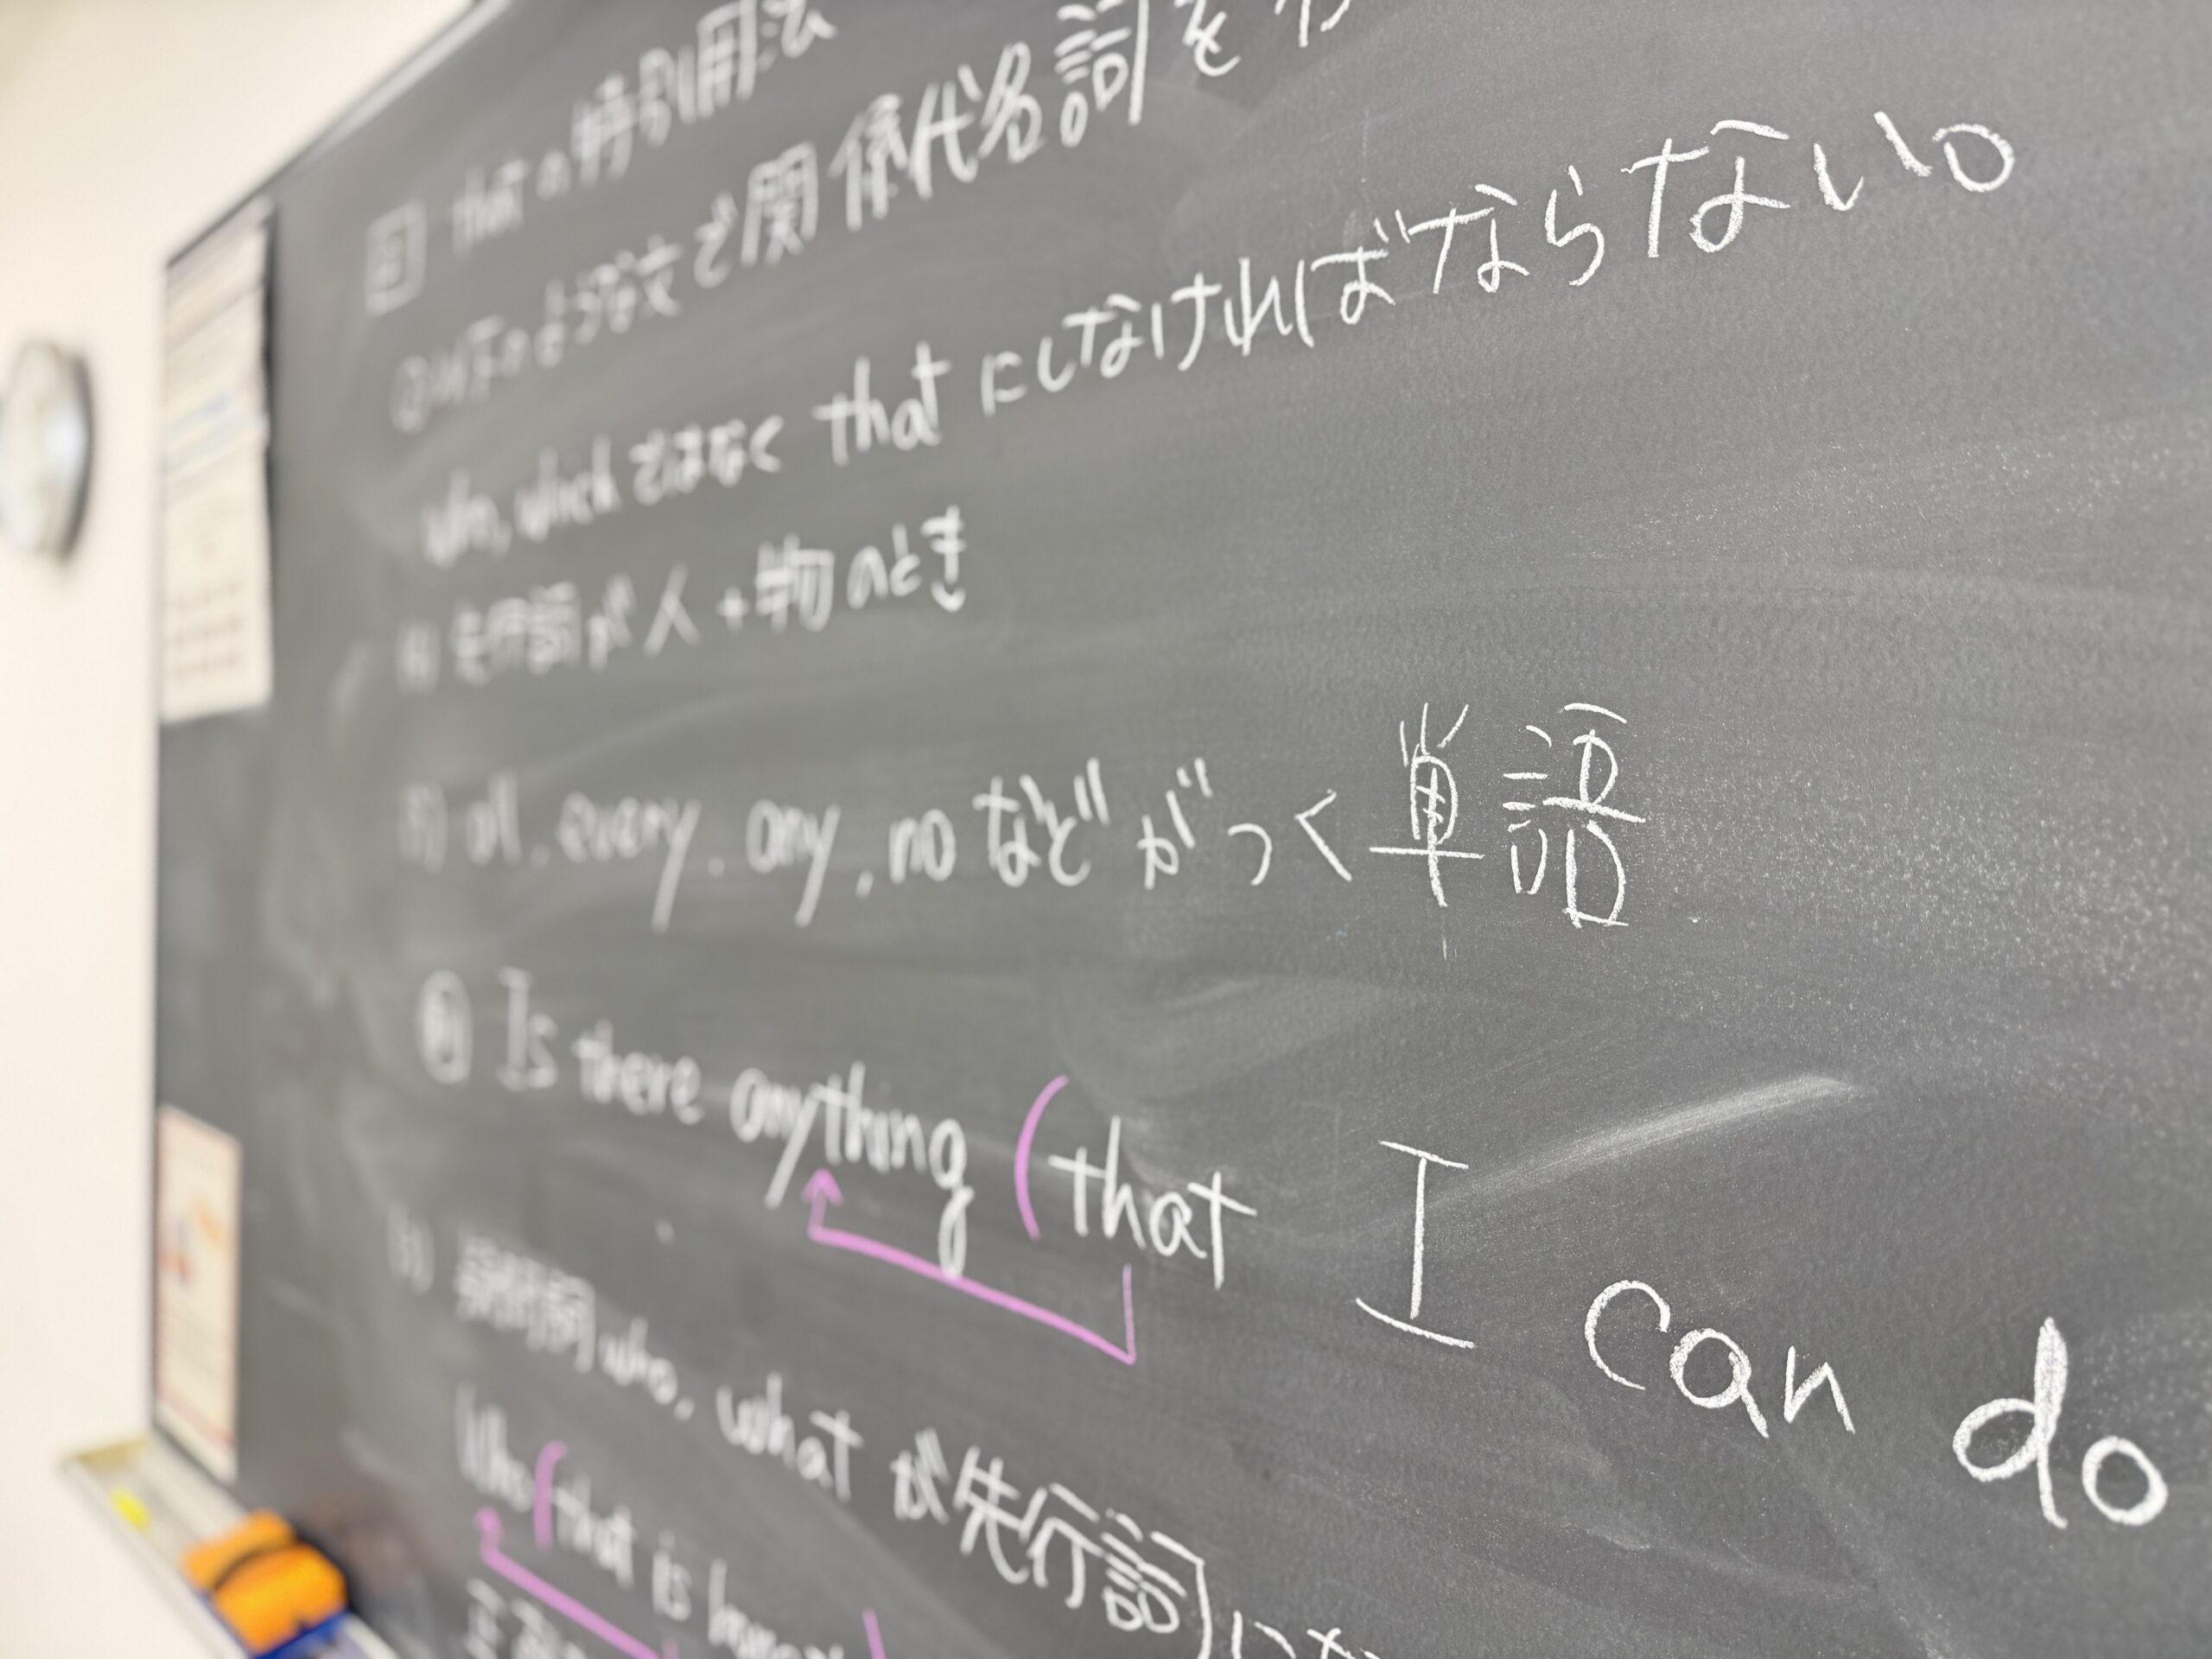 that の特別用法
Q 以下のような文で関係代名詞を
who, which ではなく that にしなければならない。
先行詞が人+物のとき
all, every, any, no などがつく単語
Is there anything (that I can do
疑問詞 who, what が先行詞に
Who (that is